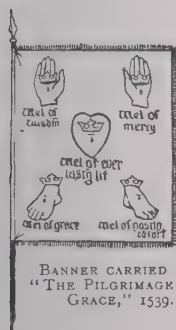 wel of
wisdm
wel of
mercy
wel of ever
lastg lif
wel of grace
wel of gostly
cofort
BANNER CARRIED
"THE PILGRIMAGE
GRACE," 1539.